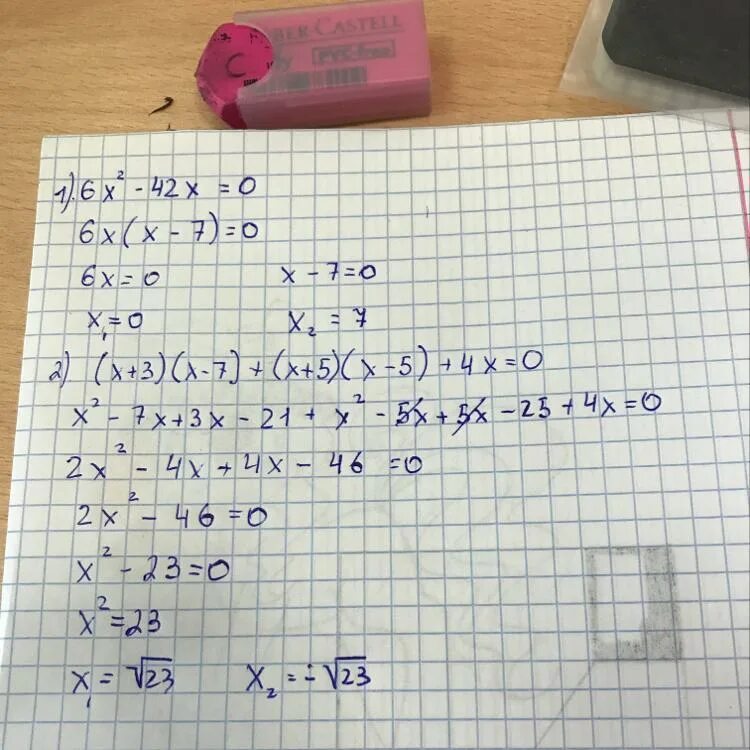 BER-CASTELL
PVC-free
1). 6x² - 42x = 0
6x(x - 7) = 0
6x = 0 x - 7 = 0
x₁ = 0 x₂ = 7
2) (x+3)(x-7) + (x+5)(x-5) + 4x = 0
x² - 7x + 3x - 21 + x² - 5x + 5x - 25 + 4x = 0
2x² - 4x + 4x - 46 = 0
2x² - 46 = 0
x² - 23 = 0
x² = 23
x₁ = √23 x₂ = -√23